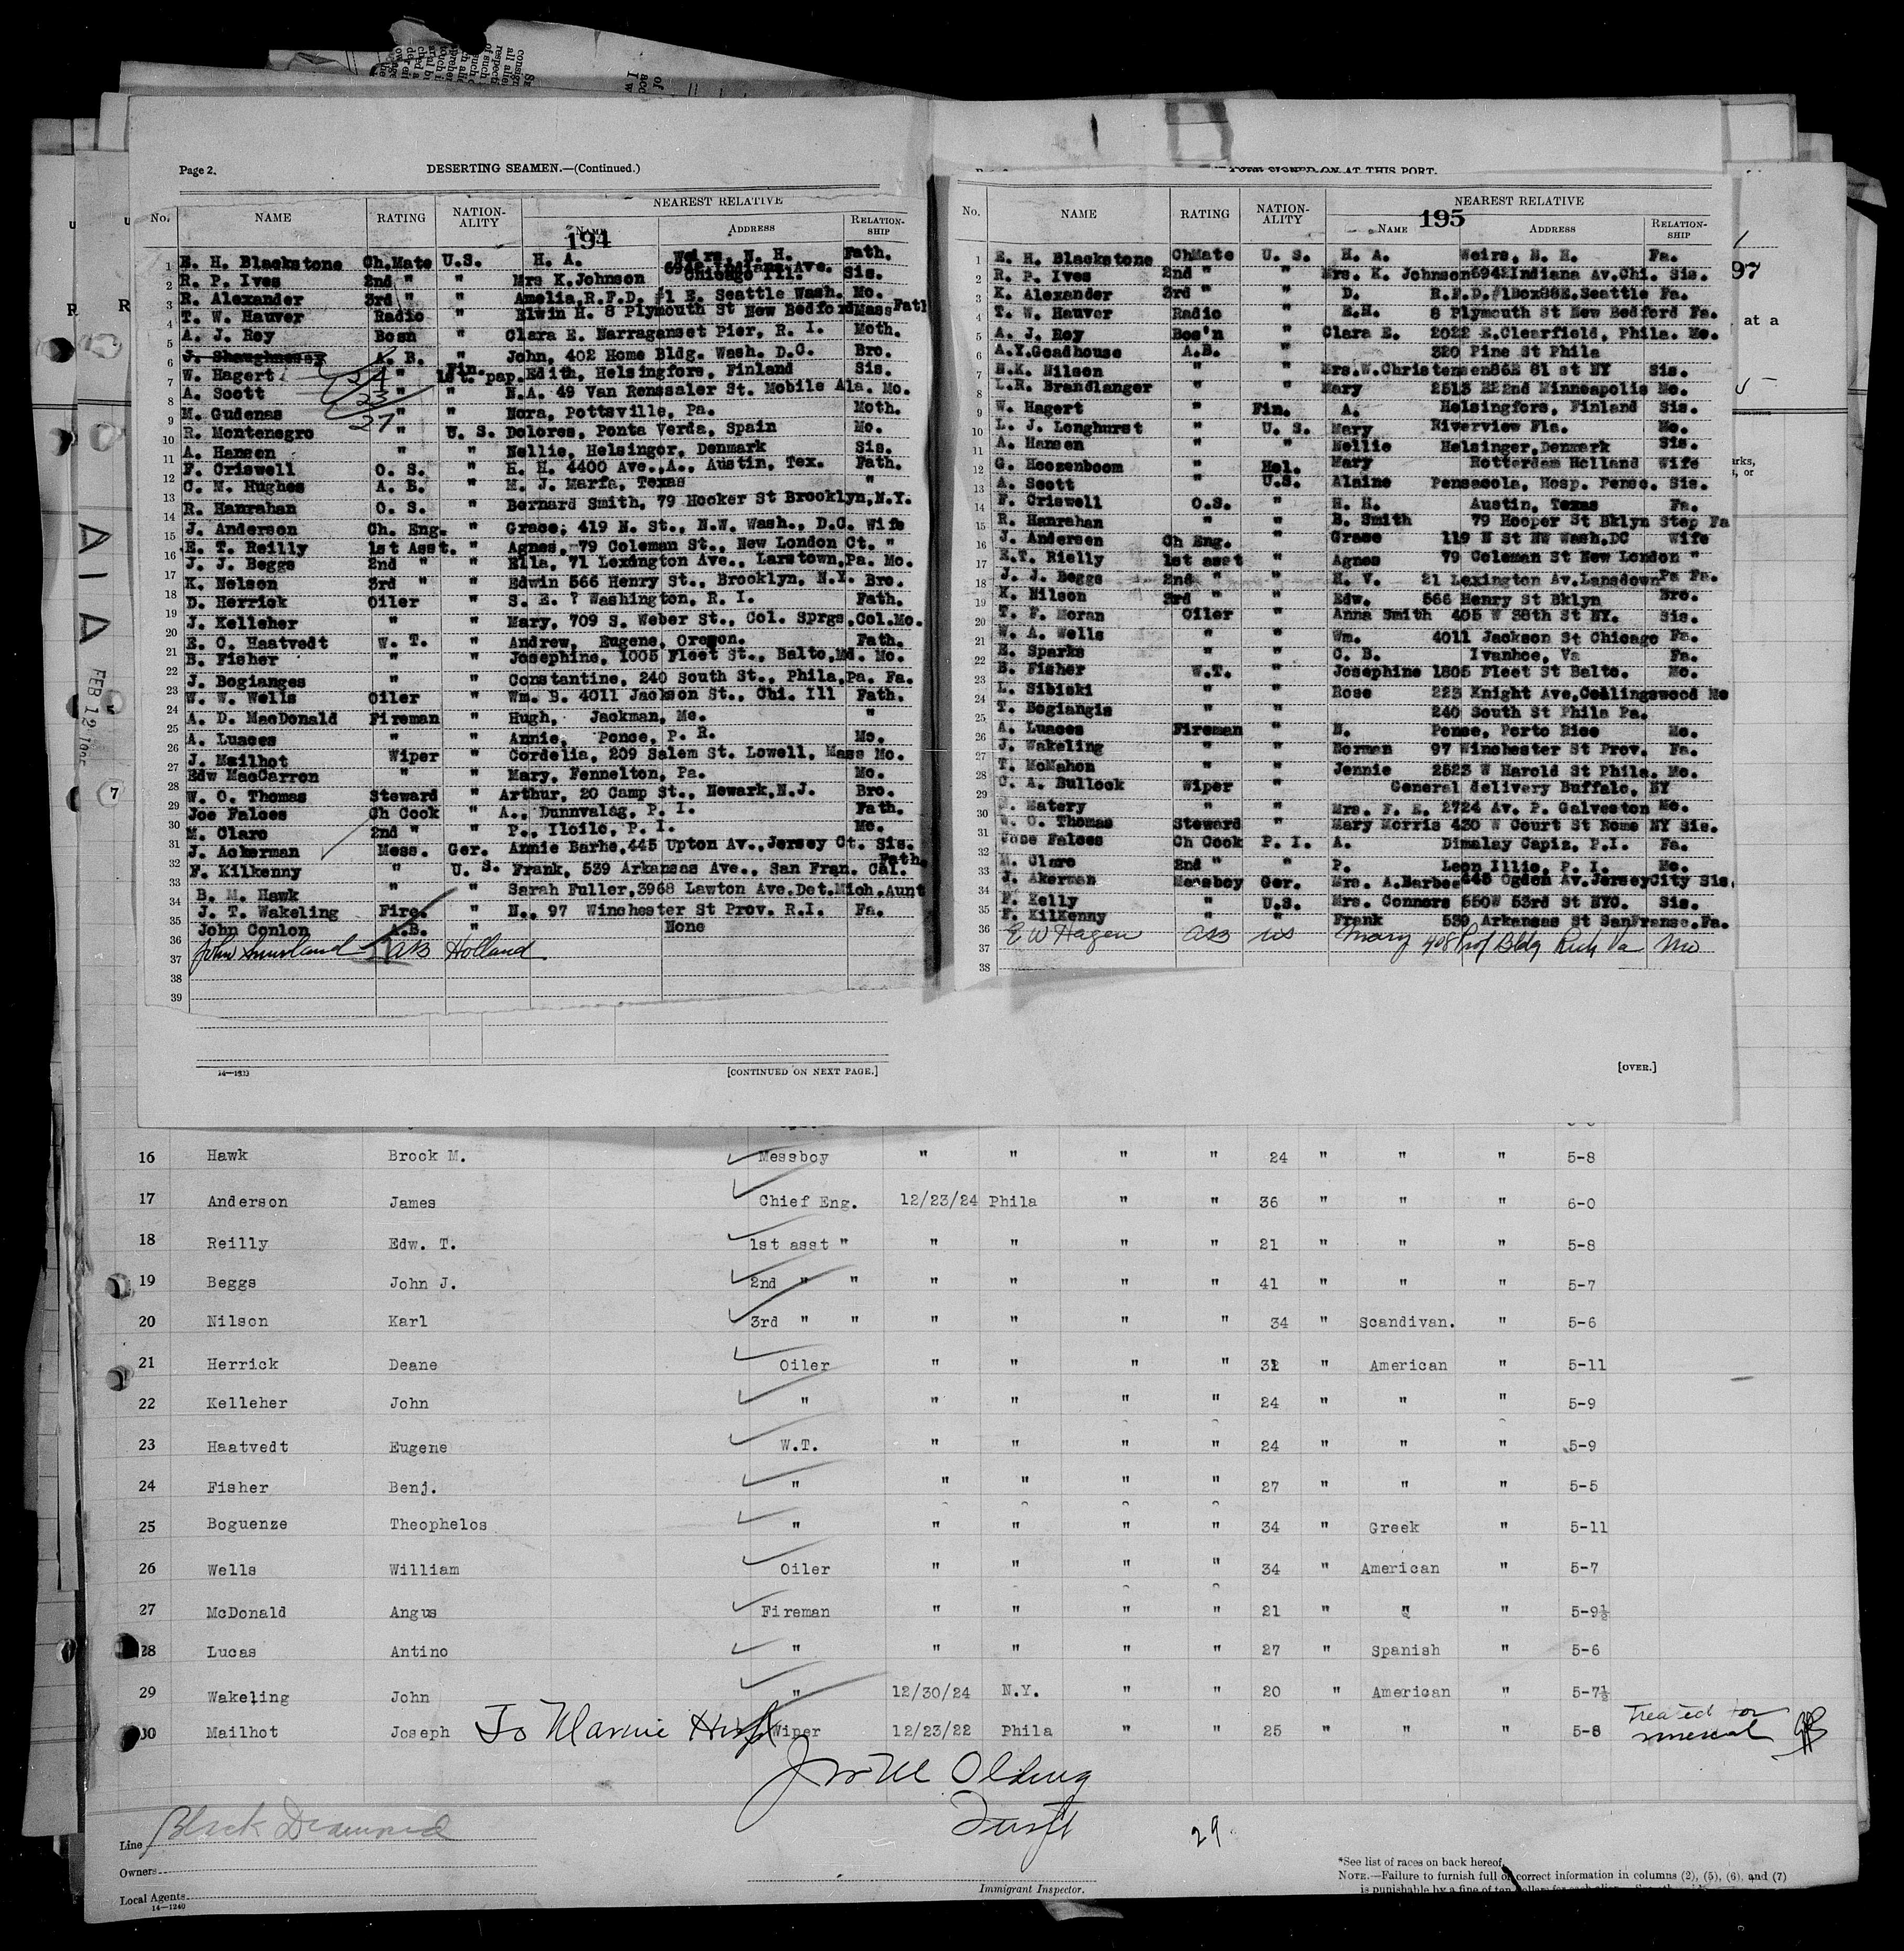 Page 2.
DESERTING SEAMEN.—(Continued.)
No. NAME RATING NATION-ALITY NEAREST RELATIVE
NAME ADDRESS RELATION-SHIP
194
1 E. H. Blackstone Ch.Mate U.S. H. A. Weirs, N. H. Fath.
2 R. P. Ives 2nd " " Mrs K.Johnson Indiana Ave. Chicago Ill. Sis.
3 R. Alexander 3rd " " Amelia,R.F.D. #1 E. Seattle Wash. Mo.
4 T. W. Hauver Radio " Elwin H. 8 Plymouth St New Bedford Mass Fath
5 A. J. Roy Bosn " Clara E. Narraganset Pier, R. I. Moth.
6 J. Shaughnessy A. B. " John, 402 Home Bldg. Wash. D.C. Bro.
7 W. Hagert " Fin. 1st. pap. Edith, Helsingfors, Finland Sis.
8 A. Scott " " N.A. 49 Van Renssaler St. Mobile Ala. Mo.
9 M. Gudenas " " Nora, Pottsville, Pa. Moth.
10 R. Montenegro " U. S. Dolores, Ponta Verda, Spain Mo.
11 A. Hansen " " Nellie, Helsingor, Denmark Sis.
12 F. Criswell O. S. " H. H. 4400 Ave.,A., Austin, Tex. Fath.
13 C. M. Hughes A. B. " M. J. Marfa, Texas "
14 R. Hanrahan O. S. " Bernard Smith, 79 Hooker St Brooklyn,N.Y.
15 J. Anderson Ch. Eng. " Grace, 419 N. St., N.W. Wash., D.C. Wife
16 E. T. Reilly 1st Asst. " Agnes, 79 Coleman St., New London Ct. "
17 J. J. Beggs 2nd " " Ella, 71 Lexington Ave., Larstown,Pa. Mo.
18 K. Nelson 3rd " " Edwin 566 Henry St., Brooklyn, N.Y. Bro.
19 D. Herrick Oiler " S. E. ? Washington, R. I. Fath.
20 J. Kelleher " " Mary, 709 S. Weber St., Col. Sprgs.Col.Mo.
21 E. C. Haatvedt W. T. " Andrew, Eugene, Oregon. Fath.
22 B. Fisher " " Josephine, 1005 Fleet St., Balto,Md. Mo.
23 J. Bogianges " " Constantine, 240 South St., Phila,Pa. Fa.
24 W. W. Wells Oiler " Wm. B. 4011 Jackson St., Chi. Ill Fath.
25 A. D. MacDonald Fireman " Hugh, Jackman, Me. "
26 A. Luaces " " Annie, Ponce, P. R. Mo.
27 J. Mailhot Wiper " Cordelia, 209 Salem St. Lowell, Mass Mo.
28 Edw MacCarron " " Mary, Fennelton, Pa. Mo.
29 W. O. Thomas Steward " Arthur, 20 Camp St., Newark,N.J. Bro.
30 Joe Falces Ch Cook " A., Dunnvalag, P. I. Fath.
31 M. Claro 2nd " " P., Iloilo, P. I. Mo.
32 J. Ackerman Mess. Ger. Annie Barhe,445 Upton Av.,Jersey Ct. Sis.
33 F. Kilkenny " U. S. Frank, 539 Arkansas Ave., San Fran. Cal. Fath.
34 B. M. Hawk " " Sarah Fuller,3968 Lawton Ave.Det.Mich.Aunt
35 J. T. Wakeling Fire. " N., 97 Winchester St Prov. R.I. Fa.
36 John Conlon A.B. " None
37 John AB Holland
38
39
14—1523
[CONTINUED ON NEXT PAGE.]
SIGNED ON AT THIS PORT.
No. NAME RATING NATION-ALITY NEAREST RELATIVE
NAME ADDRESS RELATION-SHIP
195
1 E. H. Blackstone ChMate U. S. H. A. Weirs, N. H. Fa.
2 R. P. Ives 2nd " " Mrs. K. Johnson Indiana Av.Chi. Sis.
3 K. Alexander 3rd " " D. R.F.D.#1Box88E.Seattle Fa.
4 T. W. Hauver Radio " E.H. 8 Plymouth St New Bedford Fa.
5 A. J. Roy Bos'n " Clara E. 2022 E.Clearfield, Phila. Mo.
6 A.Y.Goadhouse A.B. " 320 Pine St Phila
7 N.K. Nilson " " Mrs.W.Christensen86E 81 st NY Sis.
8 L.R. Brandlanger " " Mary 2513 22nd Minneapolis Mo.
9 W. Hagert " Fin. A. Helsingfors, Finland Sis.
10 L. J. Longhurst " U. S. Mary Riverview Fla. Mo.
11 A. Hansen " " Nellie Helsinger,Denmark Sis.
12 G. Hoozenboom " Hol. Mary Rotterdam Holland Wife
13 A. Scott " U.S. Alaine Pensacola, Hosp. Penso. Sis.
14 F. Criswell O.S. " H. H. Austin, Texas Fa.
15 R. Hanrahan " " B. Smith 79 Hooper St Bklyn Step Fa
16 J. Andersen Ch Eng. " Grace 119 N St NW Wash.DC Wife
17 E.T. Rielly 1st asst " Agnes 79 Coleman St New London "
18 J. J. Beggs 2nd " " H. V. 21 Lexington Av.Lansdown Pa Fa.
19 K. Nilson 3rd " " Edw. 566 Henry St Bklyn Bro.
20 T. F. Moran Oiler " Anna Smith 405 W 36th St NY. Sis.
21 W. A. Wells " " Wm. 4011 Jackson St Chicago Fa.
22 E. Sparks " " C. B. Ivanhoe, Va Fa.
23 B. Fisher W.T. " Josephine 1805 Fleet St Balto. Mo.
24 L. Sibiski " " Rose 223 Knight Ave,Collingswood Mo
25 T. Bogiangis " " 240 South St Phila Pa.
26 A. Luaces Fireman " N. Ponce, Porto Rico Mo.
27 J. Wakeling " " Norman 97 Winchester St Prov. Fa.
28 T. McMahon " " Jennie 2523 W Harold St Phila. Mo.
29 C. A. Bullock Wiper " General delivery Buffalo, NY
30 Matery " " Mrs. F. E. 2724 Av. P. Galveston Mo.
31 W. O. Thomas Steward " Mary Morris 430 W Court St Rome NY Sis.
32 Jose Falces Ch Cook P. I. A. Dimalay Capiz, P.I. Fa.
33 M. Claro 2nd " " P. Leon Illio, P. I. Mo.
34 J. Akerman Messboy Ger. Mrs. A.Barbee 445 Ogden Av.JerseyCity Sis.
35 F. Kelly " U.S. Mrs. Conners 550W 53rd St NYC. Sis.
36 F. Kilkenny " " Frank 530 Arkansas St SanFransc.Fa.
37 E W Hagen AB US Mary 408 Prof Bldg Rich Va Mo
38
[OVER.]
97
at a
FEB 12
7
16 Hawk Brook M. Messboy " " " " 24 " " " 5-8
17 Anderson James Chief Eng. 12/23/24 Phila " " 36 " " " 6-0
18 Reilly Edw. T. 1st asst " " " " " 21 " " " 5-8
19 Beggs John J. 2nd " " " " " " 41 " " " 5-7
20 Nilson Karl 3rd " " " " " " 34 " Scandivan. " 5-6
21 Herrick Deane Oiler " " " " 32 " American " 5-11
22 Kelleher John " " " " " 24 " " " 5-9
23 Haatvedt Eugene W.T. " " " " 24 " " " 5-9
24 Fisher Benj. " " " " " 27 " " " 5-5
25 Boguenze Theophelos " " " " " 34 " Greek " 5-11
26 Wells William Oiler " " " " 34 " American " 5-7
27 McDonald Angus Fireman " " " " 21 " " " 5-9½
28 Lucas Antino " " " " " 27 " Spanish " 5-6
29 Wakeling John " 12/30/24 N.Y. " " 20 " American " 5-7½
30 Mailhot Joseph To Marine Hosp Wiper 12/23/22 Phila " " 25 " " " 5-8 Treated for
29
Line Black Diamond
Owners
Local Agents
14—1240
Immigrant Inspector.
*See list of races on back hereof.
NOTE.—Failure to furnish full or correct information in columns (2), (5), (6), and (7)
is punishable by a fine of ten dollars for each alien